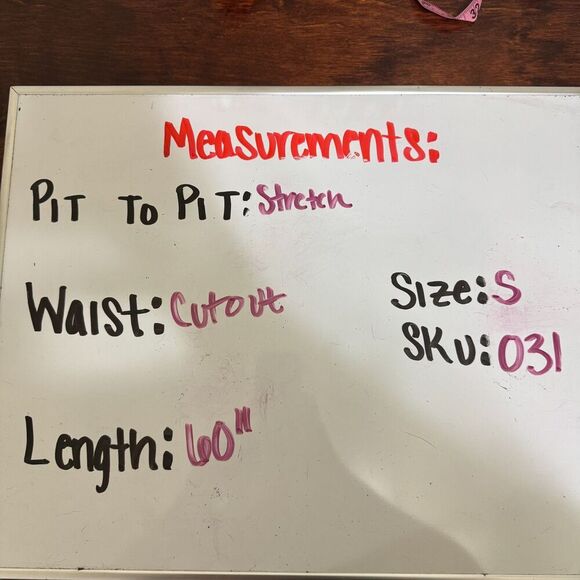 Measurements:
PIT TO PIT: Stretch
Waist: Cutout
Size: S
SKU: 031
Length: 60"